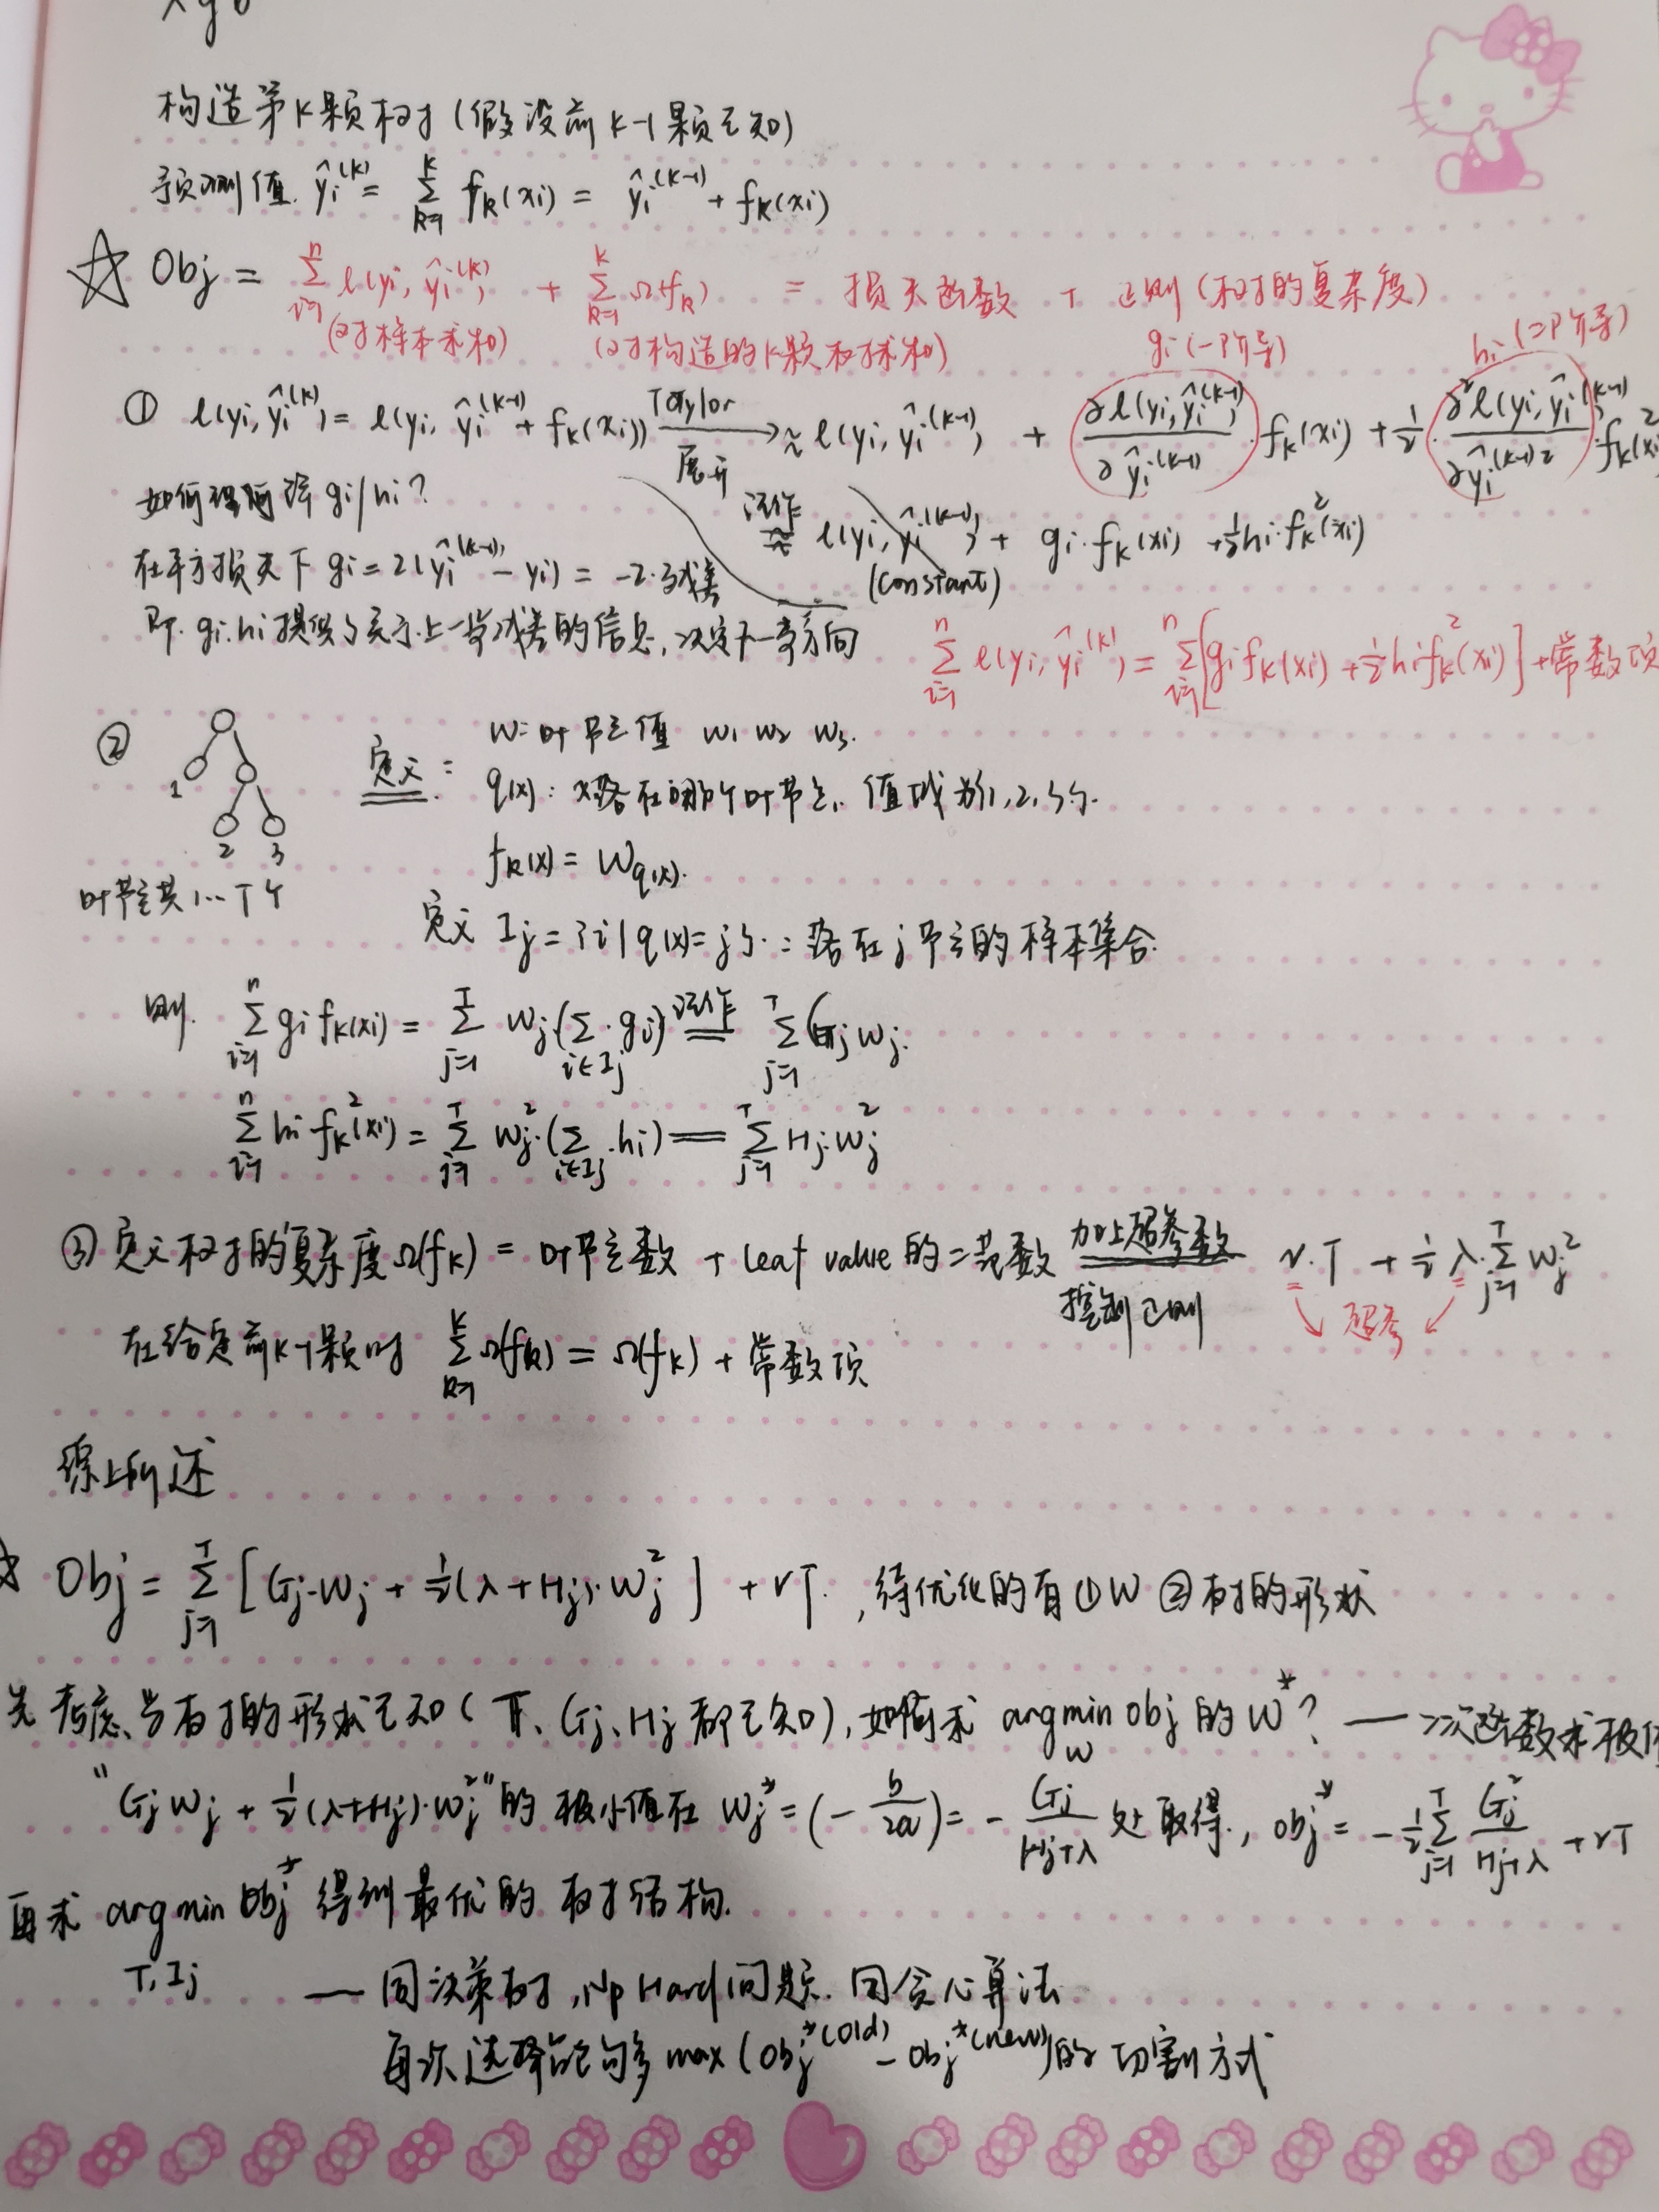 xgb
构造第K颗树(假设前K-1颗已知)
预测值. ŷi^(K) = Σ_{k=1}^{K} fk(xi) = ŷi^(K-1) + fK(xi)
☆ Obj = Σ_{i=1}^{n} l(yi, ŷi^(K)) + Σ_{k=1}^{K} Ω(fk) = 损失函数 + 正则(树的复杂度)
(对样本求和) (对构造的K颗树求和) gi(一阶导) hi(二阶导)
① l(yi, ŷi^(K)) = l(yi, ŷi^(K-1) + fK(xi)) Taylor展开 → ≈ l(yi, ŷi^(K-1)) + ∂l(yi, ŷi^(K-1))/∂ŷi^(K-1) · fK(xi) + 1/2 · ∂²l(yi, ŷi^(K-1))/∂ŷi^(K-1)2 · fK²(xi
如何理解 gi/hi?
记作 ≈ l(yi, ŷi^(K-1)) + gi·fK(xi) + 1/2 hi·fK²(xi)
(constant)
在平方损失下 gi = 2(ŷi^(K-1) - yi) = -2·残差
即. gi.hi提供了关于上一步残差的信息,决定下一步方向
Σ_{i=1}^{n} l(yi, ŷi^(K)) = Σ_{i=1}^{n} [gi fK(xi) + 1/2 hi fK²(xi)] + 常数项
② 1 2 3
叶节点共1...T个
定义: w: 叶节点值 w1 w2 w3.
q(x): x落在哪个叶节点. 值域为{1,2,3}.
fk(x) = w_q(x).
定义 Ij = {i|q(x)=j}.: 落在j节点的样本集合.
则. Σ_{i=1}^{n} gi fK(xi) = Σ_{j=1}^{T} wj(Σ_{i∈Ij} gi) 记作 = Σ_{j=1}^{T} Gj wj.
Σ_{i=1}^{n} hi fK²(xi) = Σ_{j=1}^{T} wj²·(Σ_{i∈Ij} hi) = Σ_{j=1}^{T} Hj·wj²
③ 定义树的复杂度Ω(fK) = 叶节点数 + leaf value的二范数 加上超参数 控制正则 γ·T + 1/2 λ·Σ_{j=1}^{T} wj²
超参
在给定前K-1颗时 Σ_{k=1}^{K} Ω(fk) = Ω(fK) + 常数项
综上所述
☆ Obj = Σ_{j=1}^{T} [Gj·wj + 1/2(λ+Hj)·wj²] + γT. ,待优化的有①W ②树的形状
先考虑、当树的形状已知(T、Gj、Hj都已知),如何求 argmin_w obj 的 w*? — 二次函数求极值
"Gj wj + 1/2(λ+Hj)·wj²"的极小值在 wj* = (-b/2a) = -Gj/(Hj+λ) 处取得., obj* = -1/2 Σ_{j=1}^{T} Gj²/(Hj+λ) + γT
再求 argmin Obj* 得到最优的树结构.
T, Ij — 同决策树, Np Hard问题. 用贪心算法
每次选择能够 max(Obj*(old) - Obj*(new))的切割方式